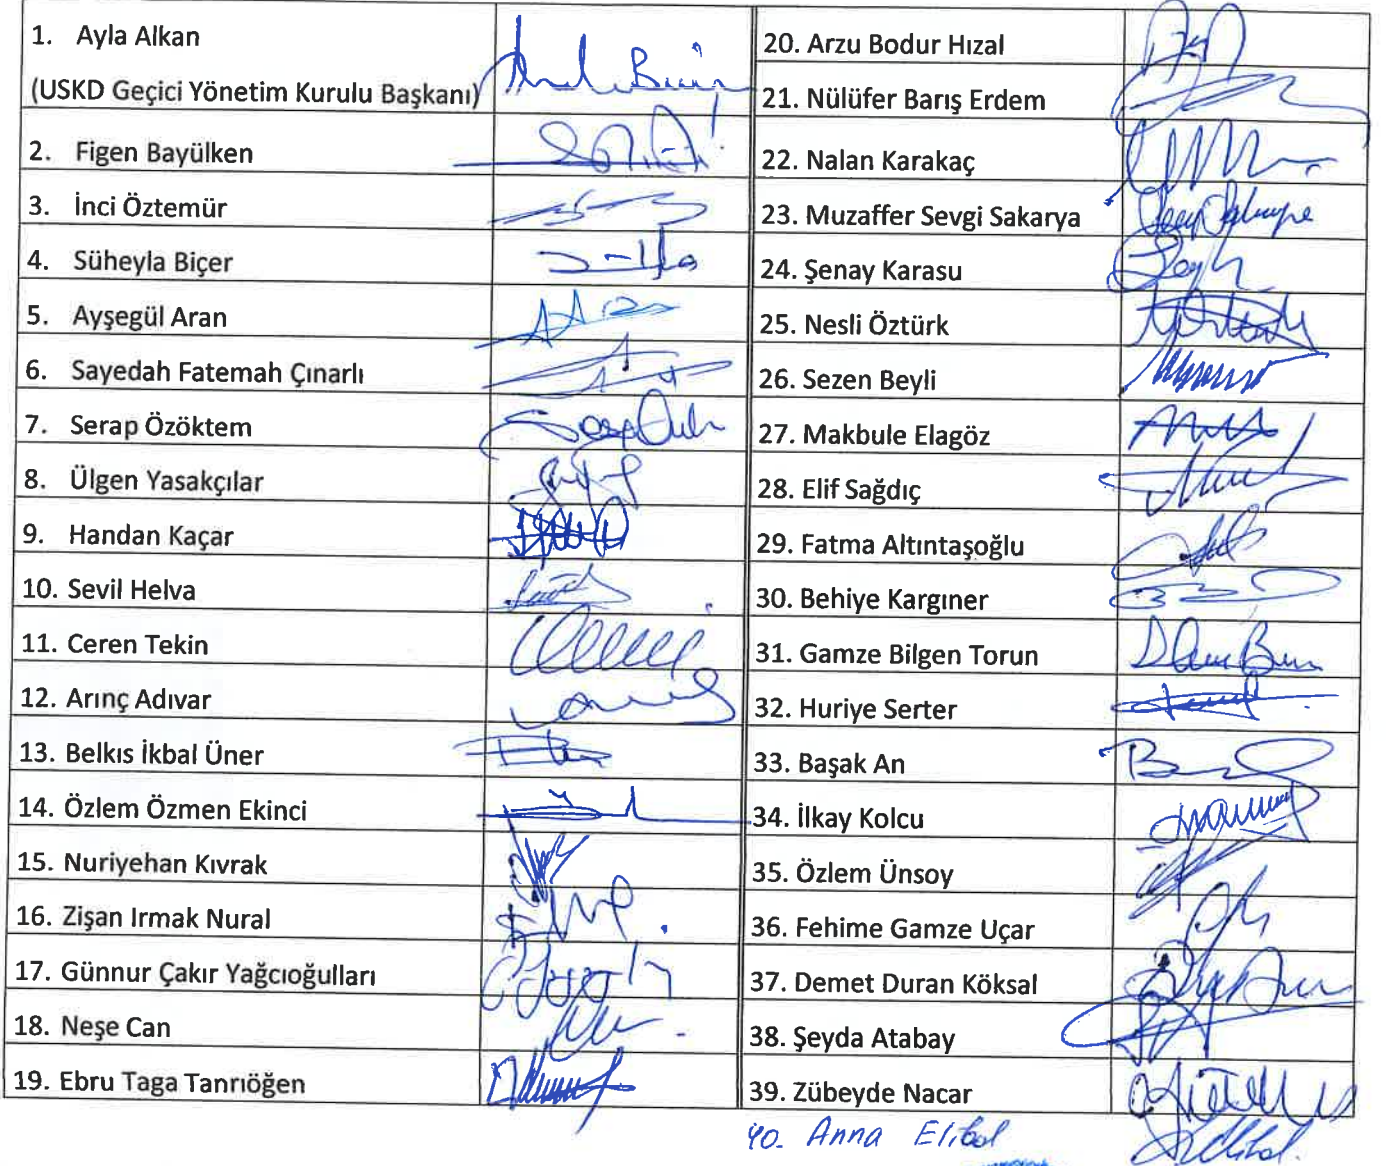 1. Ayla Alkan
(USKD Geçici Yönetim Kurulu Başkanı)
2. Figen Bayülken
3. İnci Öztemür
4. Süheyla Biçer
5. Ayşegül Aran
6. Sayedah Fatemah Çınarlı
7. Serap Özöktem
8. Ülgen Yasakçılar
9. Handan Kaçar
10. Sevil Helva
11. Ceren Tekin
12. Arınç Adıvar
13. Belkıs İkbal Üner
14. Özlem Özmen Ekinci
15. Nuriyehan Kıvrak
16. Zişan Irmak Nural
17. Günnur Çakır Yağcıoğulları
18. Neşe Can
19. Ebru Taga Tanrıöğen
20. Arzu Bodur Hızal
21. Nülüfer Barış Erdem
22. Nalan Karakaç
23. Muzaffer Sevgi Sakarya
24. Şenay Karasu
25. Nesli Öztürk
26. Sezen Beyli
27. Makbule Elagöz
28. Elif Sağdıç
29. Fatma Altıntaşoğlu
30. Behiye Kargıner
31. Gamze Bilgen Torun
32. Huriye Serter
33. Başak An
34. İlkay Kolcu
35. Özlem Ünsoy
36. Fehime Gamze Uçar
37. Demet Duran Köksal
38. Şeyda Atabay
39. Zübeyde Nacar
40. Anna Elibol